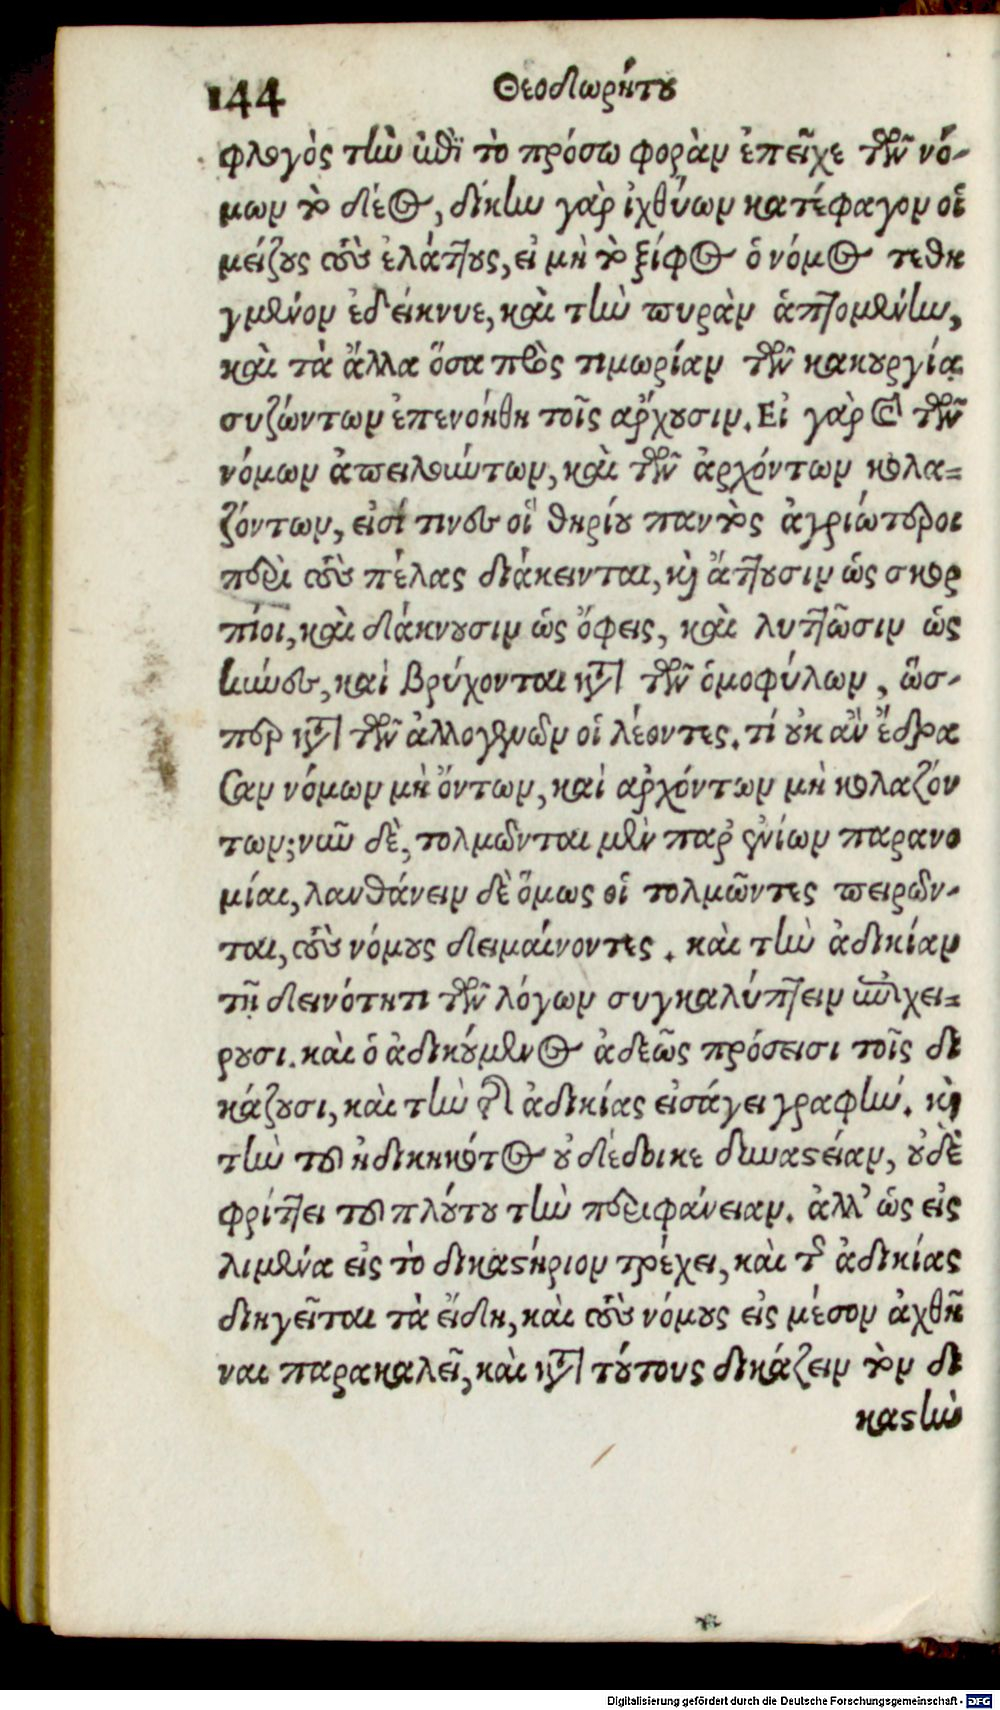 144
Θεοδωρήτου
φλογὸς τὴν ἐπὶ τὸ πρόσω φορὰν ἐπεῖχε τῶν νό-
μων τὸ δέος, δίκην γὰρ ἰχθύων κατέφαγον οἱ
μείζους τοὺς ἐλάττους, εἰ μὴ τὸ ξίφος ὁ νόμος τεθη
γμένον ἐδείκνυε, καὶ τὴν πυρὰν ἁπτομένην,
καὶ τὰ ἄλλα ὅσα πρὸς τιμωρίαν τῶν κακουργίᾳ
συζώντων ἐπενοήθη τοῖς ἄρχουσιν. Εἰ γὰρ καὶ τῶν
νόμων ἀπειλούντων, καὶ τῶν ἀρχόντων κολα=
ζόντων, εἰσί τινες οἳ θηρίου παντὸς ἀγριώτεροι
περὶ τοὺς πέλας διάκεινται, καὶ ἄττουσιν ὡς σκορ
πίοι, καὶ δάκνουσιν ὡς ὄφεις, καὶ λυττῶσιν ὡς
κύνες, καὶ βρύχονται κατὰ τῶν ὁμοφύλων, ὥσ-
περ κατὰ τῶν ἀλλογενῶν οἱ λέοντες. τί οὐκ ἂν ἔδρα
σαν νόμων μὴ ὄντων, καὶ ἀρχόντων μὴ κολαζόν
των; νῦν δὲ, τολμῶνται μὲν παρ' ἐνίων παρανο
μίαι, λανθάνειν δὲ ὅμως οἱ τολμῶντες πειρῶν-
ται, τοὺς νόμους δειμαίνοντες. καὶ τὴν ἀδικίαν
τῇ δεινότητι τῶν λόγων συγκαλύπτειν ἐπιχει=
ροῦσι. καὶ ὁ ἀδικούμενος ἀδεῶς πρόσεισι τοῖς δι
κάζουσι, καὶ τὴν τῆς ἀδικίας εἰσάγει γραφήν. καὶ
τὴν τοῦ ἠδικηκότος οὐ δέδοικε δυναστείαν, οὐδὲ
φρίττει τοῦ πλούτου τὴν περιφάνειαν. ἀλλ' ὡς εἰς
λιμένα εἰς τὸ δικαστήριον τρέχει, καὶ τῆς ἀδικίας
διηγεῖται τὰ εἴδη, καὶ τοὺς νόμους εἰς μέσον ἀχθῆ
ναι παρακαλεῖ, καὶ κατὰ τούτους δικάζειν τὸν δι
καστὴν
Digitalisierung gefördert durch die Deutsche Forschungsgemeinschaft - DFG